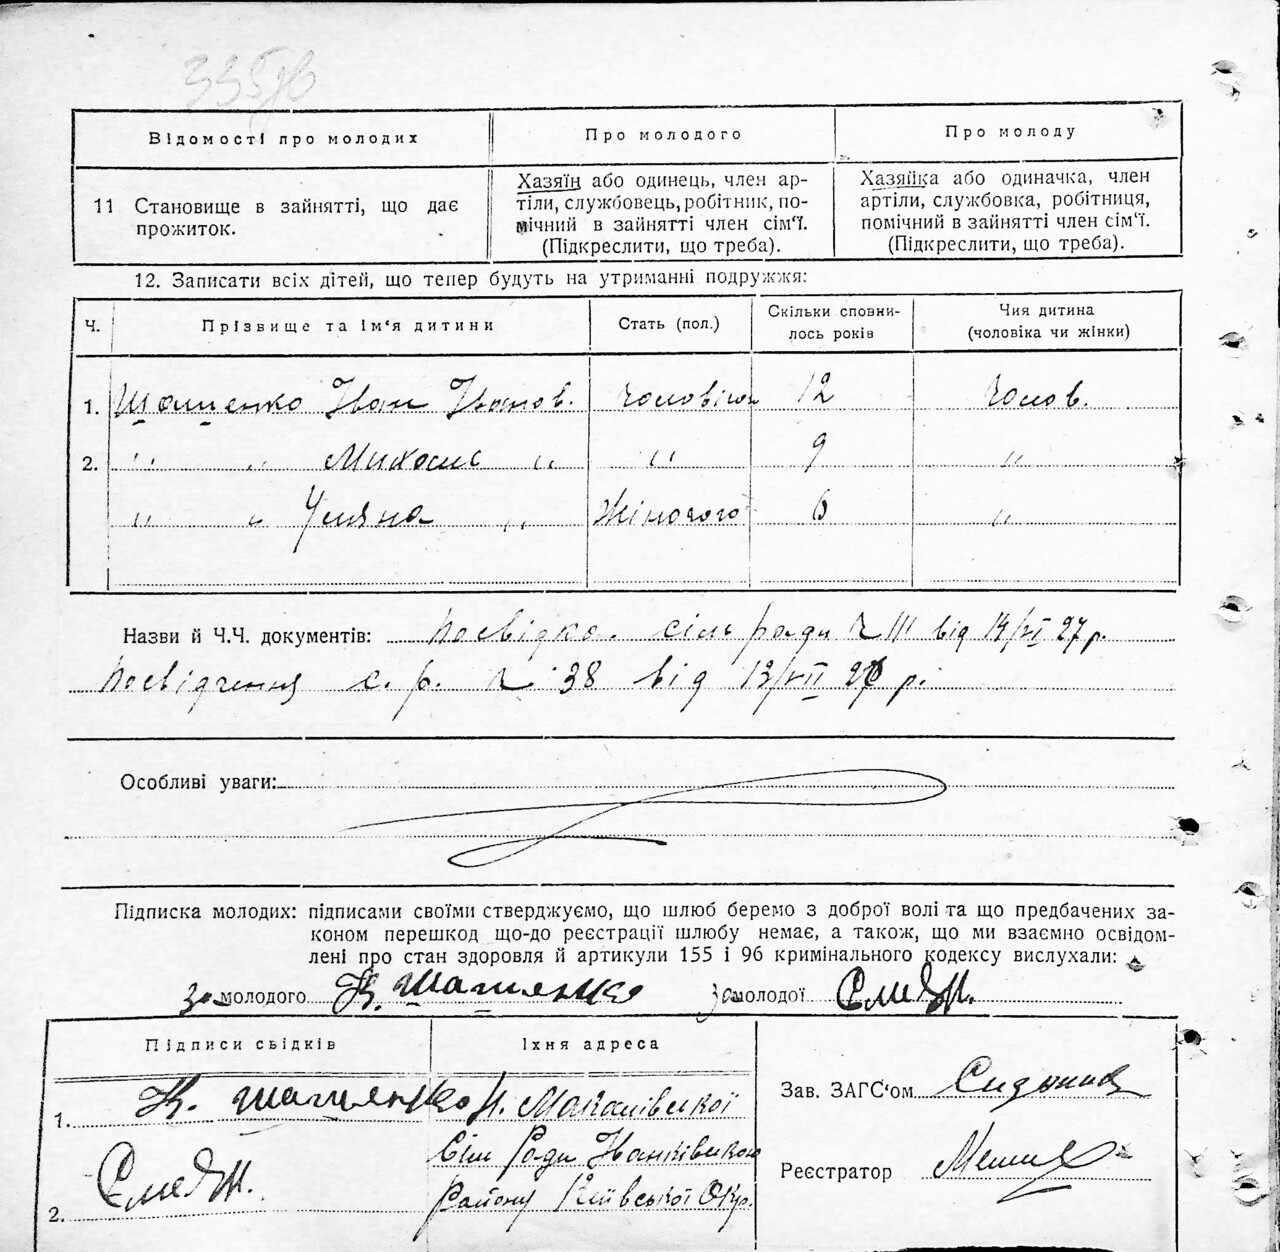 335зв
Відомості про молодих
Про молодого
Про молоду
11 Становище в зайнятті, що дає
прожиток.
Хазяїн або одинець, член ар-
тіли, службовець, робітник, по-
мічний в зайнятті член сім'ї.
(Підкреслити, що треба).
Хазяйка або одиначка, член
артіли, службовка, робітниця,
помічний в зайнятті член сім'ї.
(Підкреслити, що треба).
12. Записати всіх дітей, що тепер будуть на утриманні подружжя:
Ч.
Прізвище та ім'я дитини
Стать (пол.)
Скільки сповни-
лось років
Чия дитина
(чоловіка чи жінки)
1. Шаменко Іван Іванов. 12 Чолов.
2. " " Михаиль " " 9 "
" " Уляна " Жіночого 6 "
Назви й Ч.Ч. документів: Посвідка сіль ради Ч III від 14/VI 27 р.
Посвідчення с. р. Ч 38 від 13/VII р.
Особливі уваги:
Підписка молодих: підписами своїми стверджуємо, що шлюб беремо з доброї волі та що предбачених за-
коном перешкод що-до реєстрації шлюбу немає, а також, що ми взаємно освідом-
лені про стан здоровля й артикули 155 і 96 кримінального кодексу вислухали:
за молодого К. за молодої
Підписи свідків
Їхня адреса
1. К.
2.
с. Макалівської
Сіль Ради Іванківського
Району Київської Окр.
Зав. ЗАГС'ом
Реєстратор